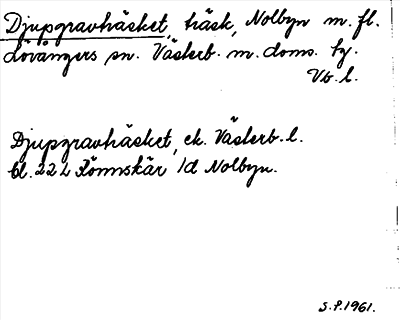 Djupgravträsket, träsk, Nolbyn m. fl.
Lövångers sn. Västerb. m. doms. tg.
Vb. l.
Djupgravträsket, ek. Västerb. l.
bl. 22 L Rönnskär 1d Nolbyn.
S.P. 1961.